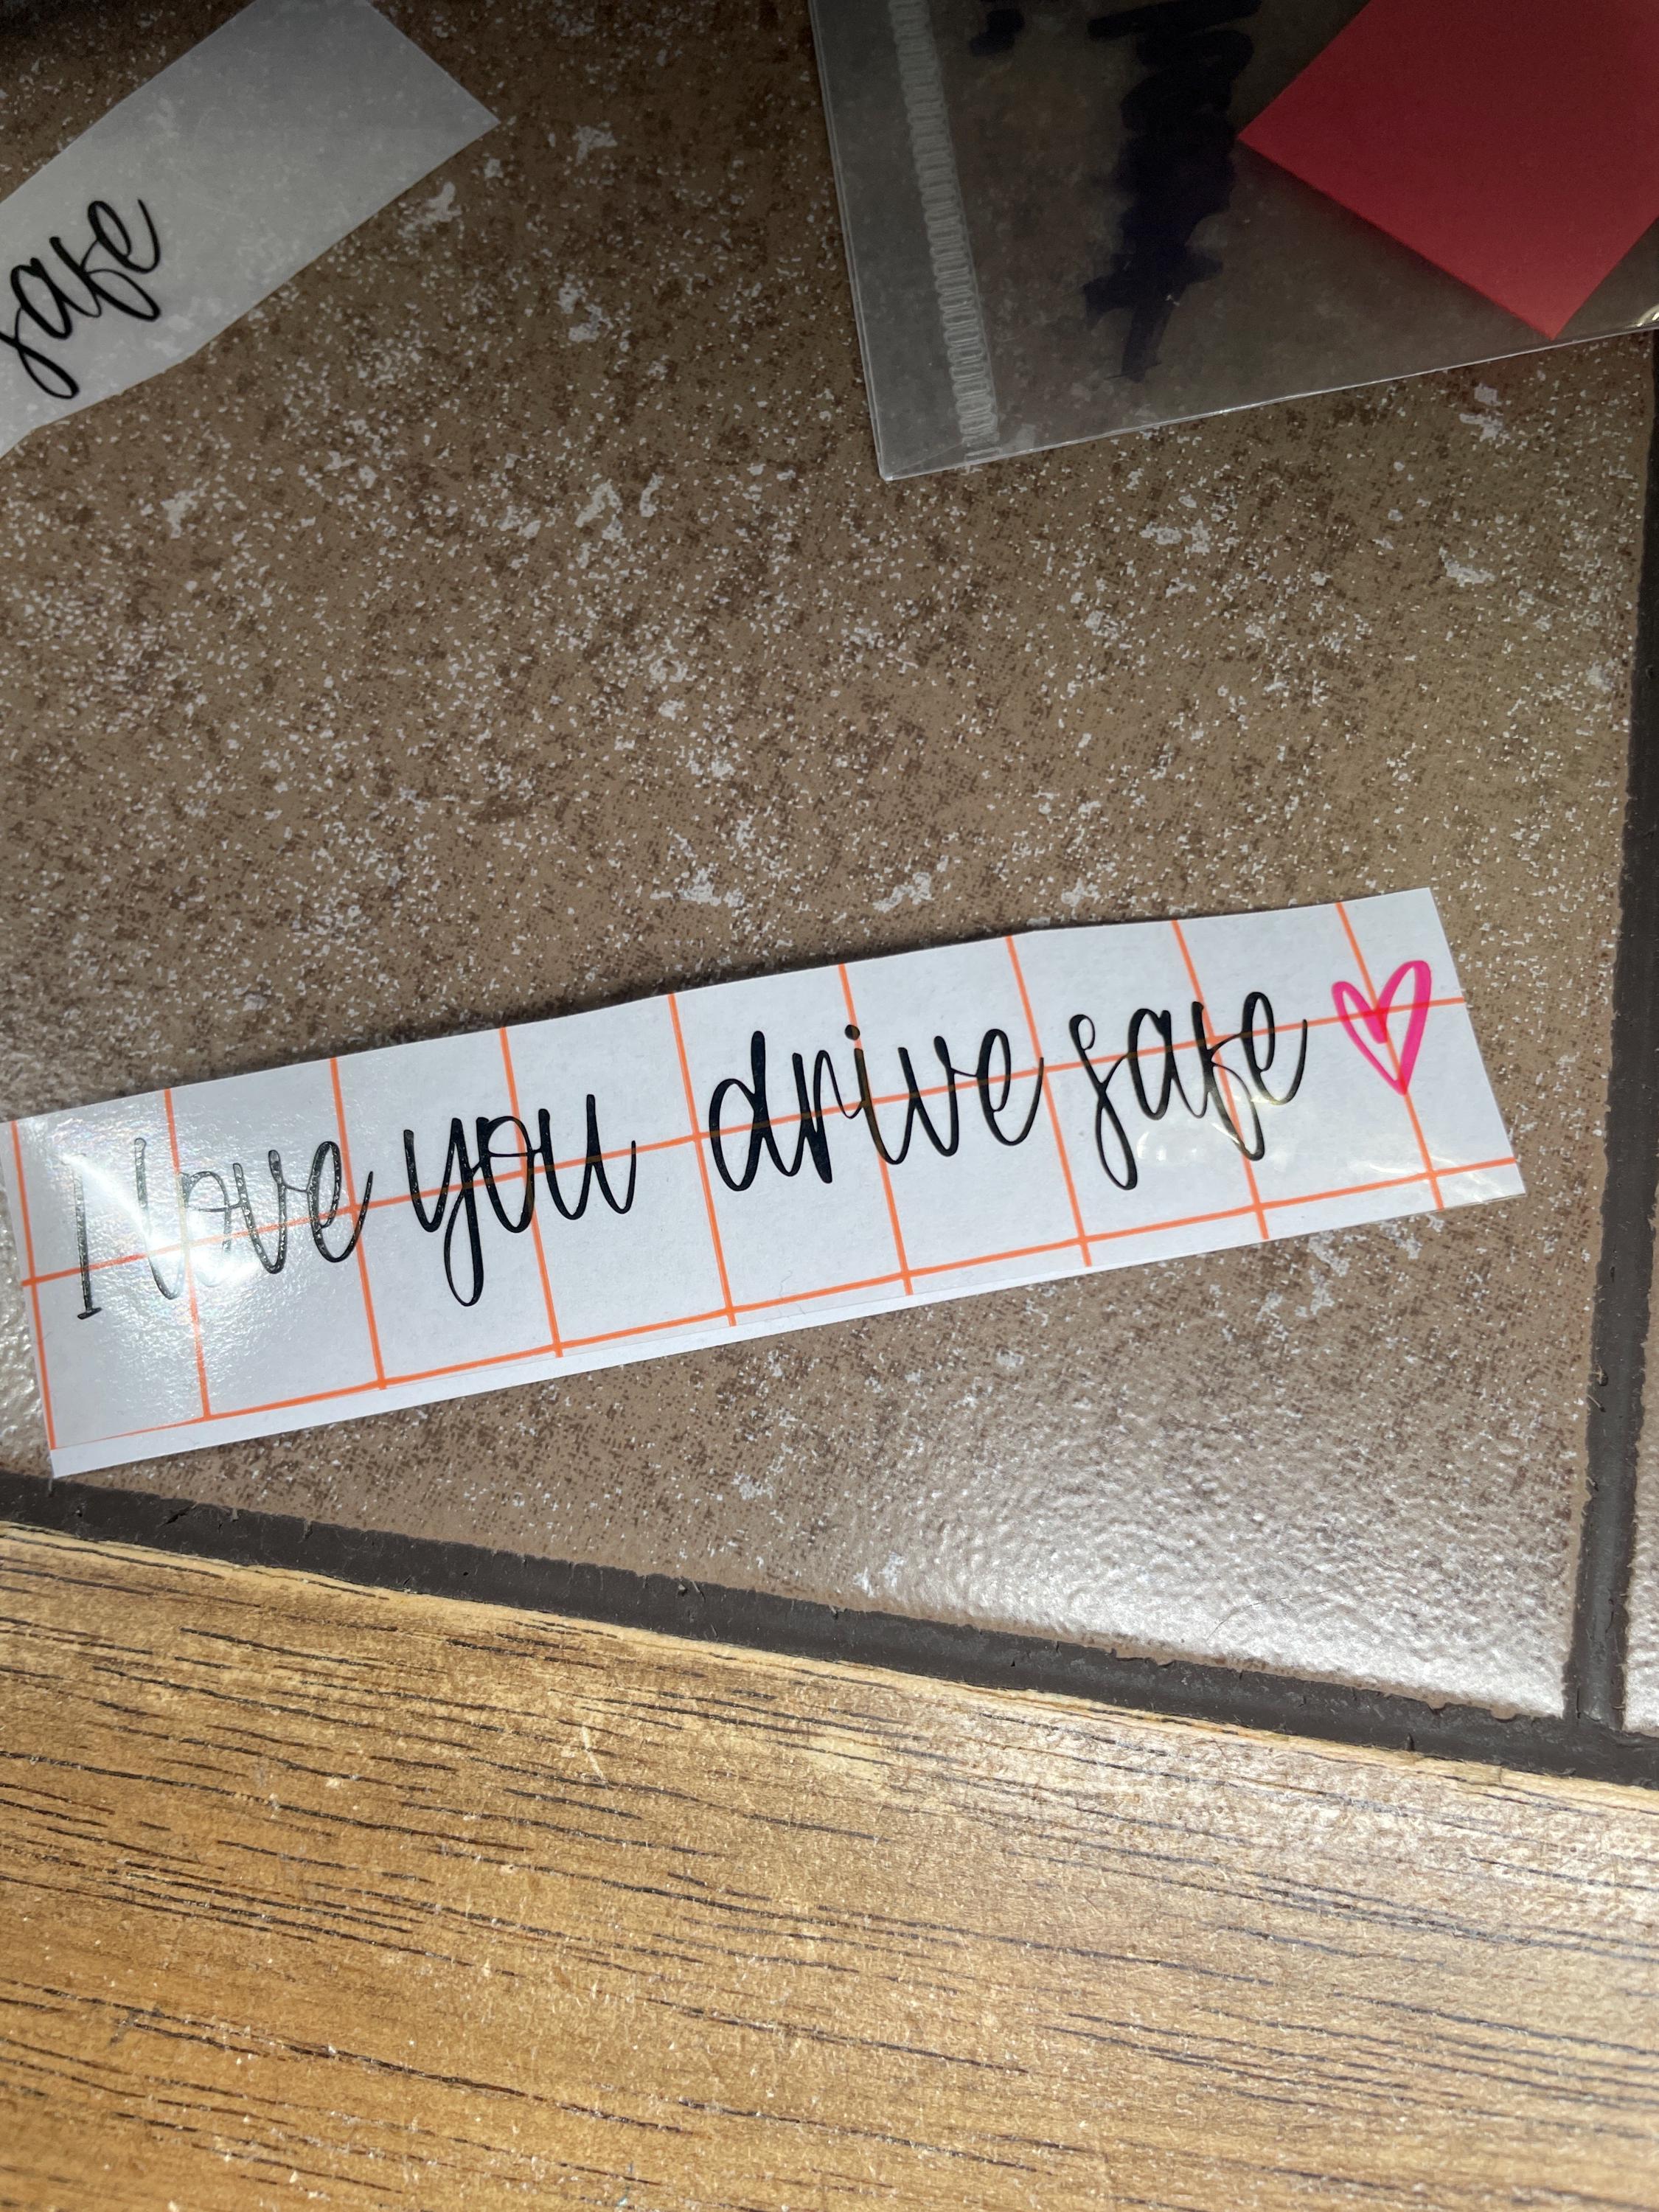 safe
I love you drive safe